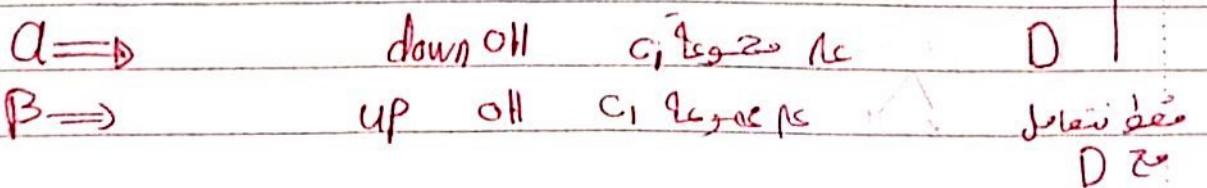 α ⇒ down OH على مجموعة C₁ D
β ⇒ up OH على مجموعة C₁ فقط نتعامل
مع D